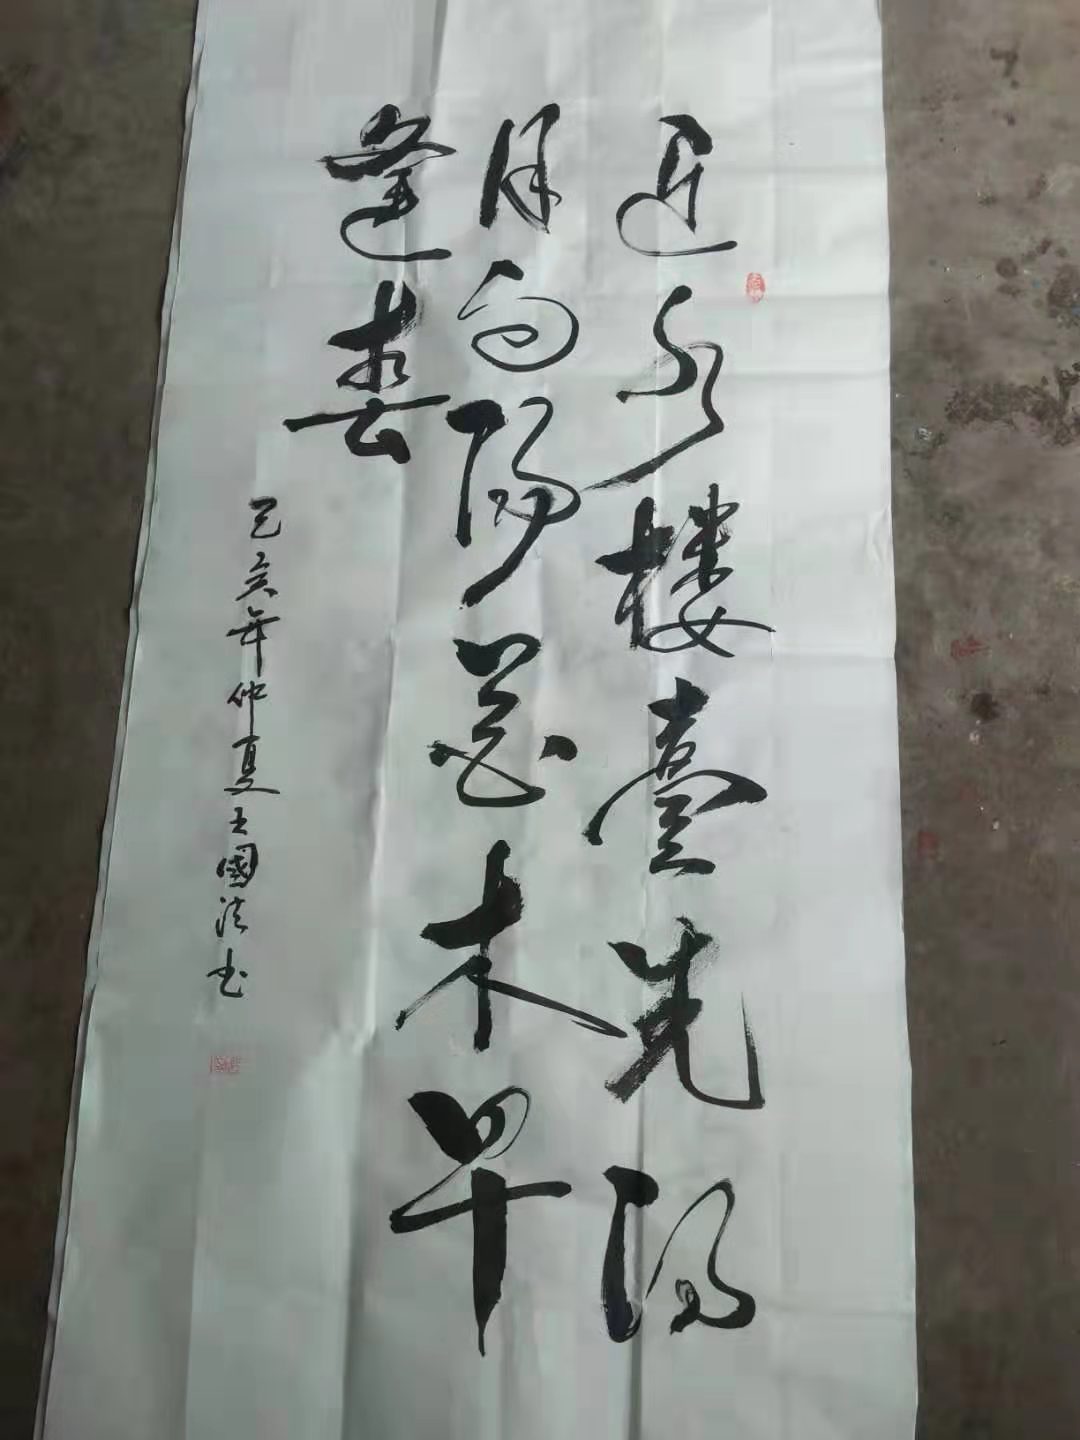 近水楼臺先得
月向陽花木早
逢春
己亥年仲夏王國法书